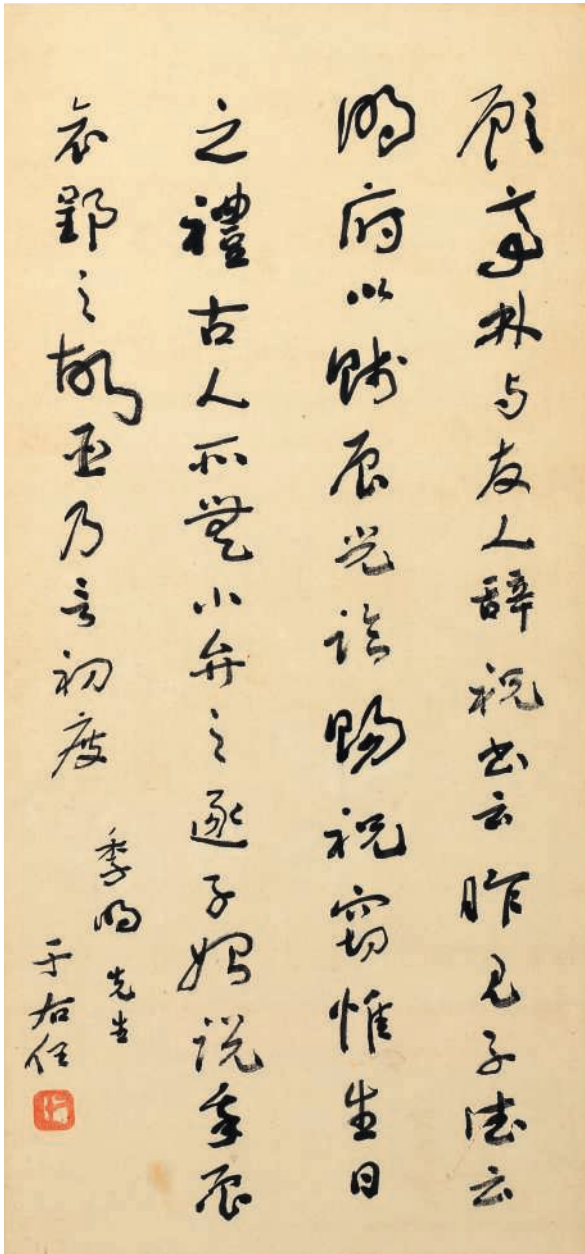 顧亭林与友人辞祝書云昨見子德云
明府以賤辰光臨賜祝竊惟生日
之禮古人所無小弁之逐子始說我辰
哀郢之放臣乃言初度
季明先生
于右任